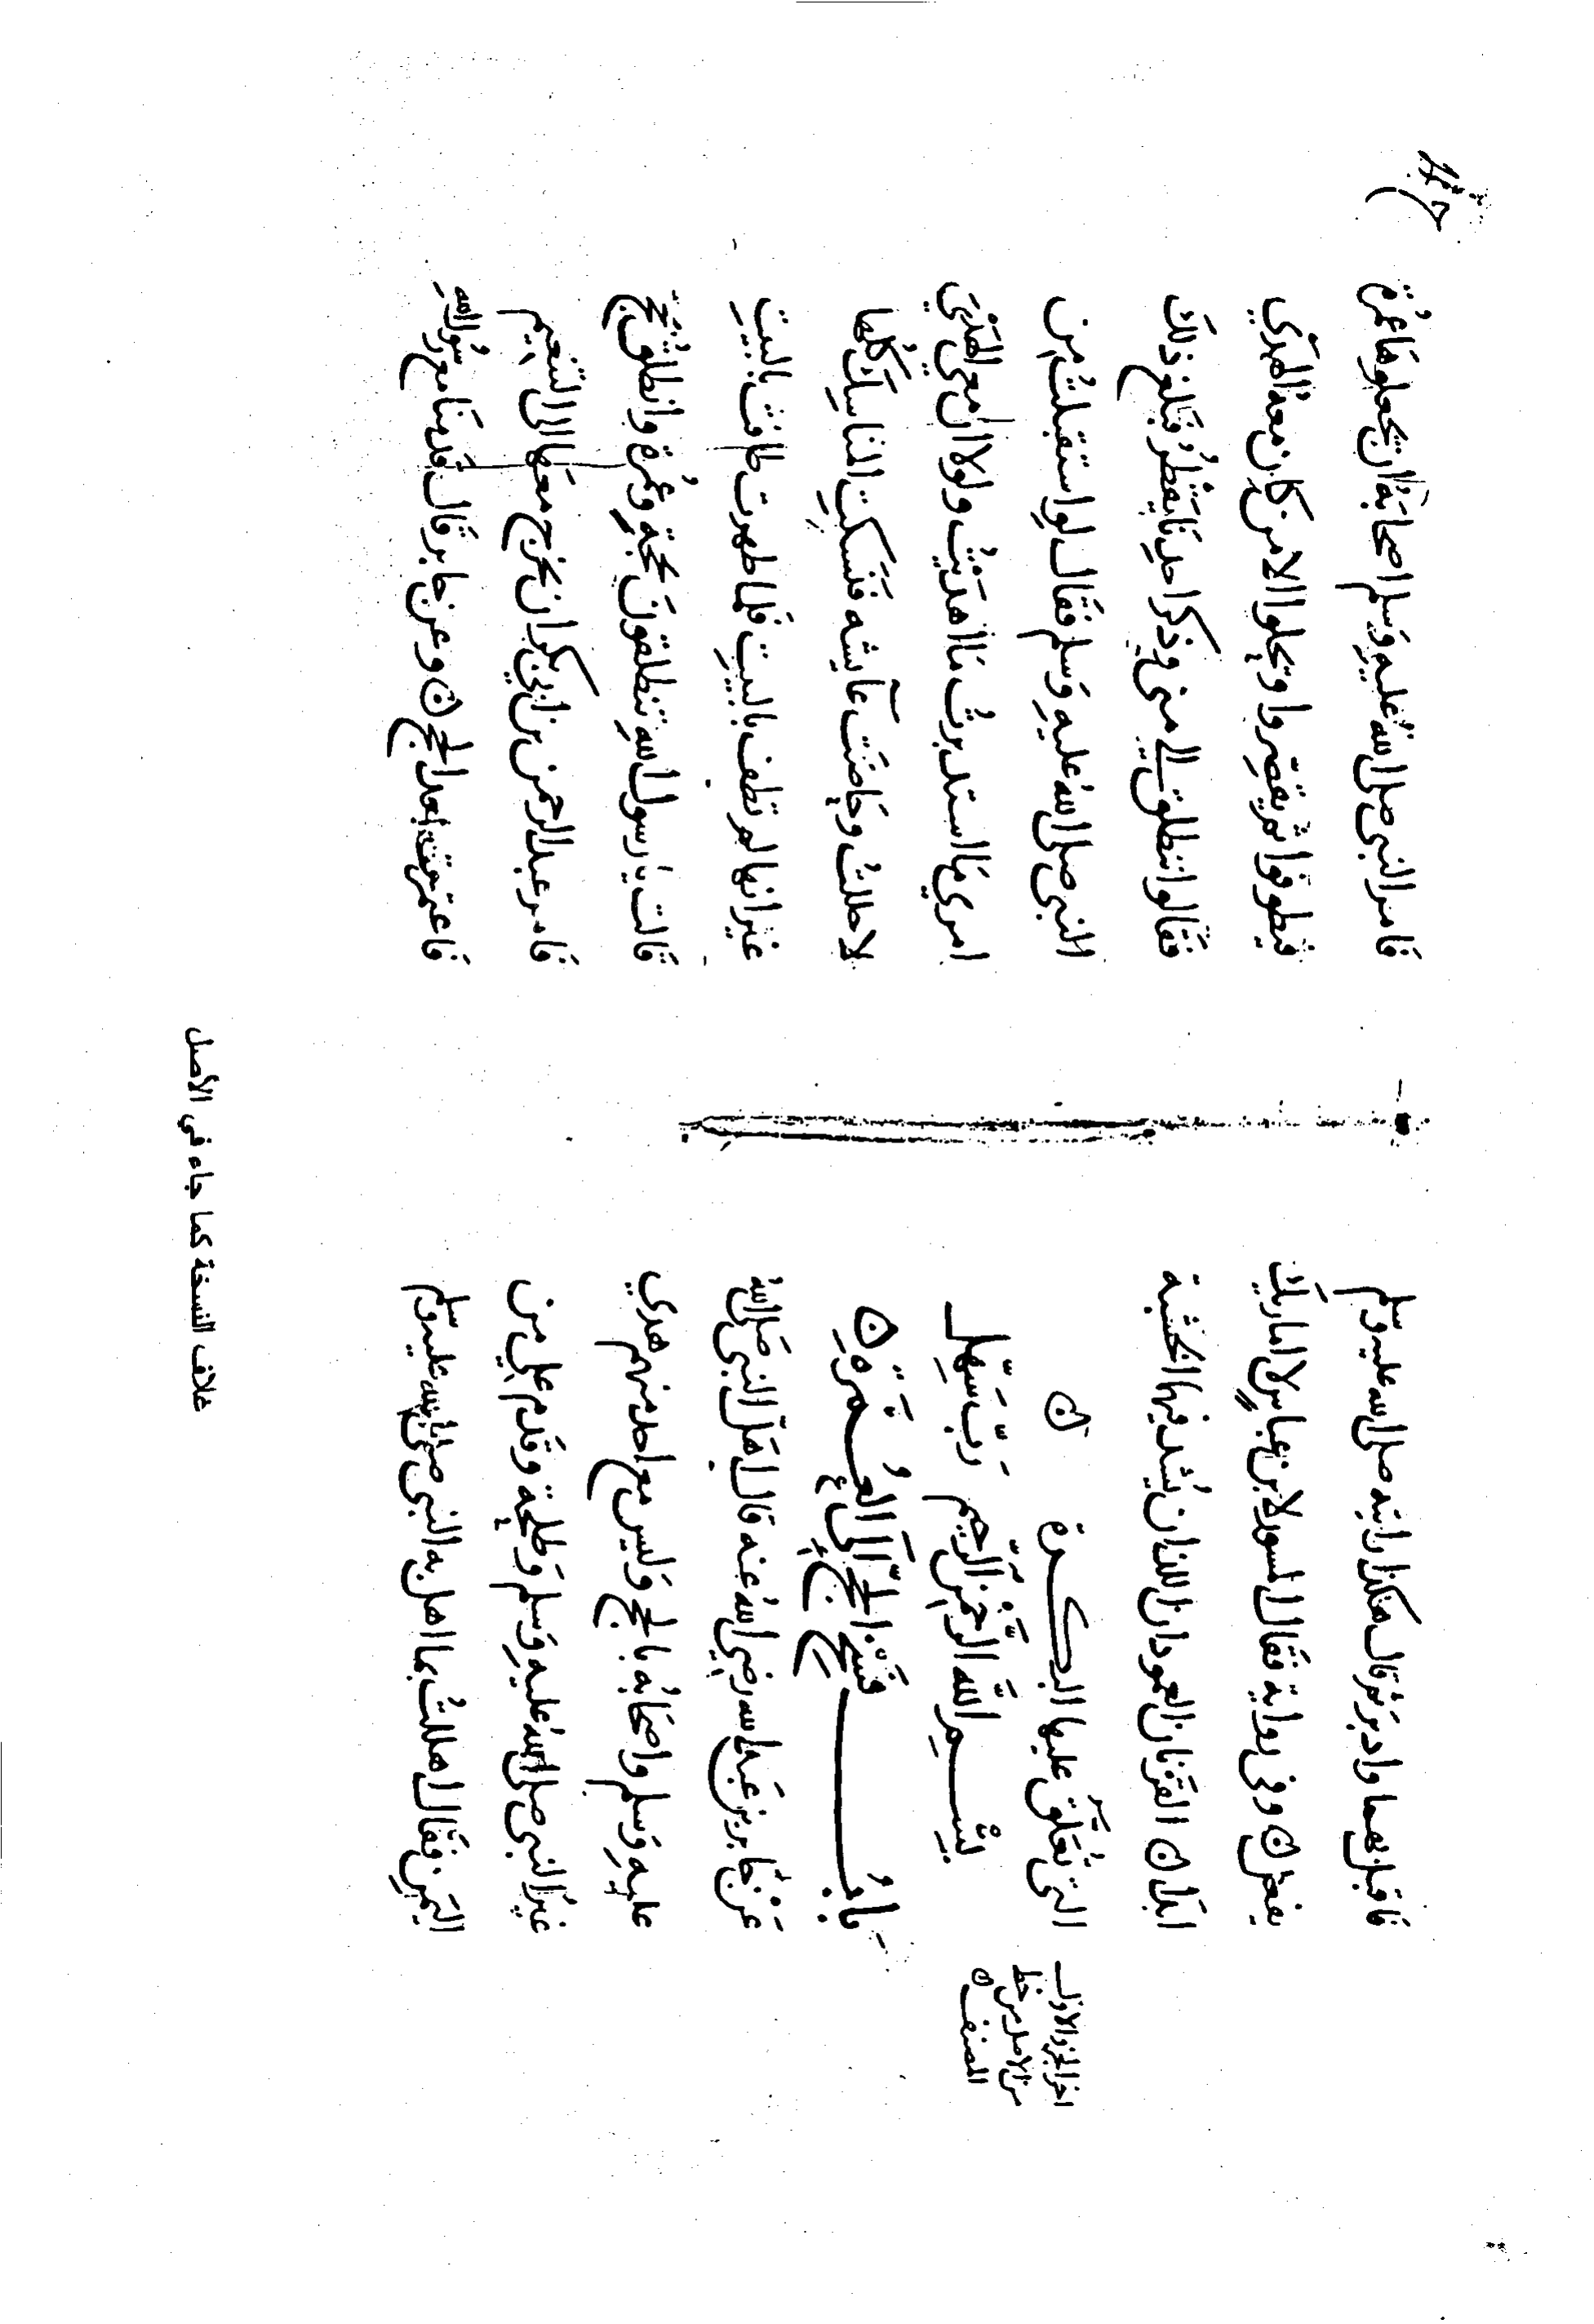 فاقبل بهما وادبر ثم قال هكذا رايته صلى الله عليه وسلم
يفعل ن وفي رواية فقال المسور لابن عباس لا اماريك
ابدا ن القرنان العمودان اللذان تشد فيهما الخشبة
التي تُعَلَّق عليها البكرة ن
بِسْمِ الله الرَّحْمَنِ الرَّحِيمِ رَبِّ سَهِّل
بابُ فَسْخِ الحَجِّ إلَى العُمرَةِ ن
عَنْ جابر بن عَبدالله رضي اللهُ عنه قال اهَلَّ النبي صَلى اللهُ
عليهِ وَسَلم واصحَابُه بالحج وَليس مع احد منهم هدي
غيرَ النبي صلى اللهُ عليهِ وَسلم وَطلحة وقدم علي من
اليَمَنِ فقَال اهللتُ بما اهل به النبي صلى الله عليه وسلم
اخر الجزو الاول
من الاصل من خط
المصنف ن
فامر النبي صلى اللهُ عليهِ وَسَلم اصحابَهُ ان يجعلوها عُمرة
فيطوفوا ثم يقصِّروا ويحلوا الا من كان معه الهدي
فقَالوا ننطلق الى منى وذكر احدنا يقطُرُ فبَلغ ذلكَ
النبي صلى اللهُ عليهِ وَسلم فقَال لو استقبلتُ مِن
امري مَا استدبرتُ مَا اهدَيْتُ ولولا ان معي الهَدْيَ
لاحللتُ وحَاضَت عآيشه فنَسَكتِ المناسِكَ كُلَّها
غيرَ انها لم تطف بالبيتِ فلما طهرت طافَت بالبيتِ
قالت يا رسول اللهِ تنطلقونَ بحجةٍ وعُمرةٍ وانطلقُ بحَجٍ
فامر عبد الرحمن بن ابي بكر ان يخرج معَها الى التنعيم
فاعتمرت بعد الحج ن وعن جابر قال قدِمنَا مع رَسُولِ اللهِ
غلاف النسخة كما جاء في الأصل